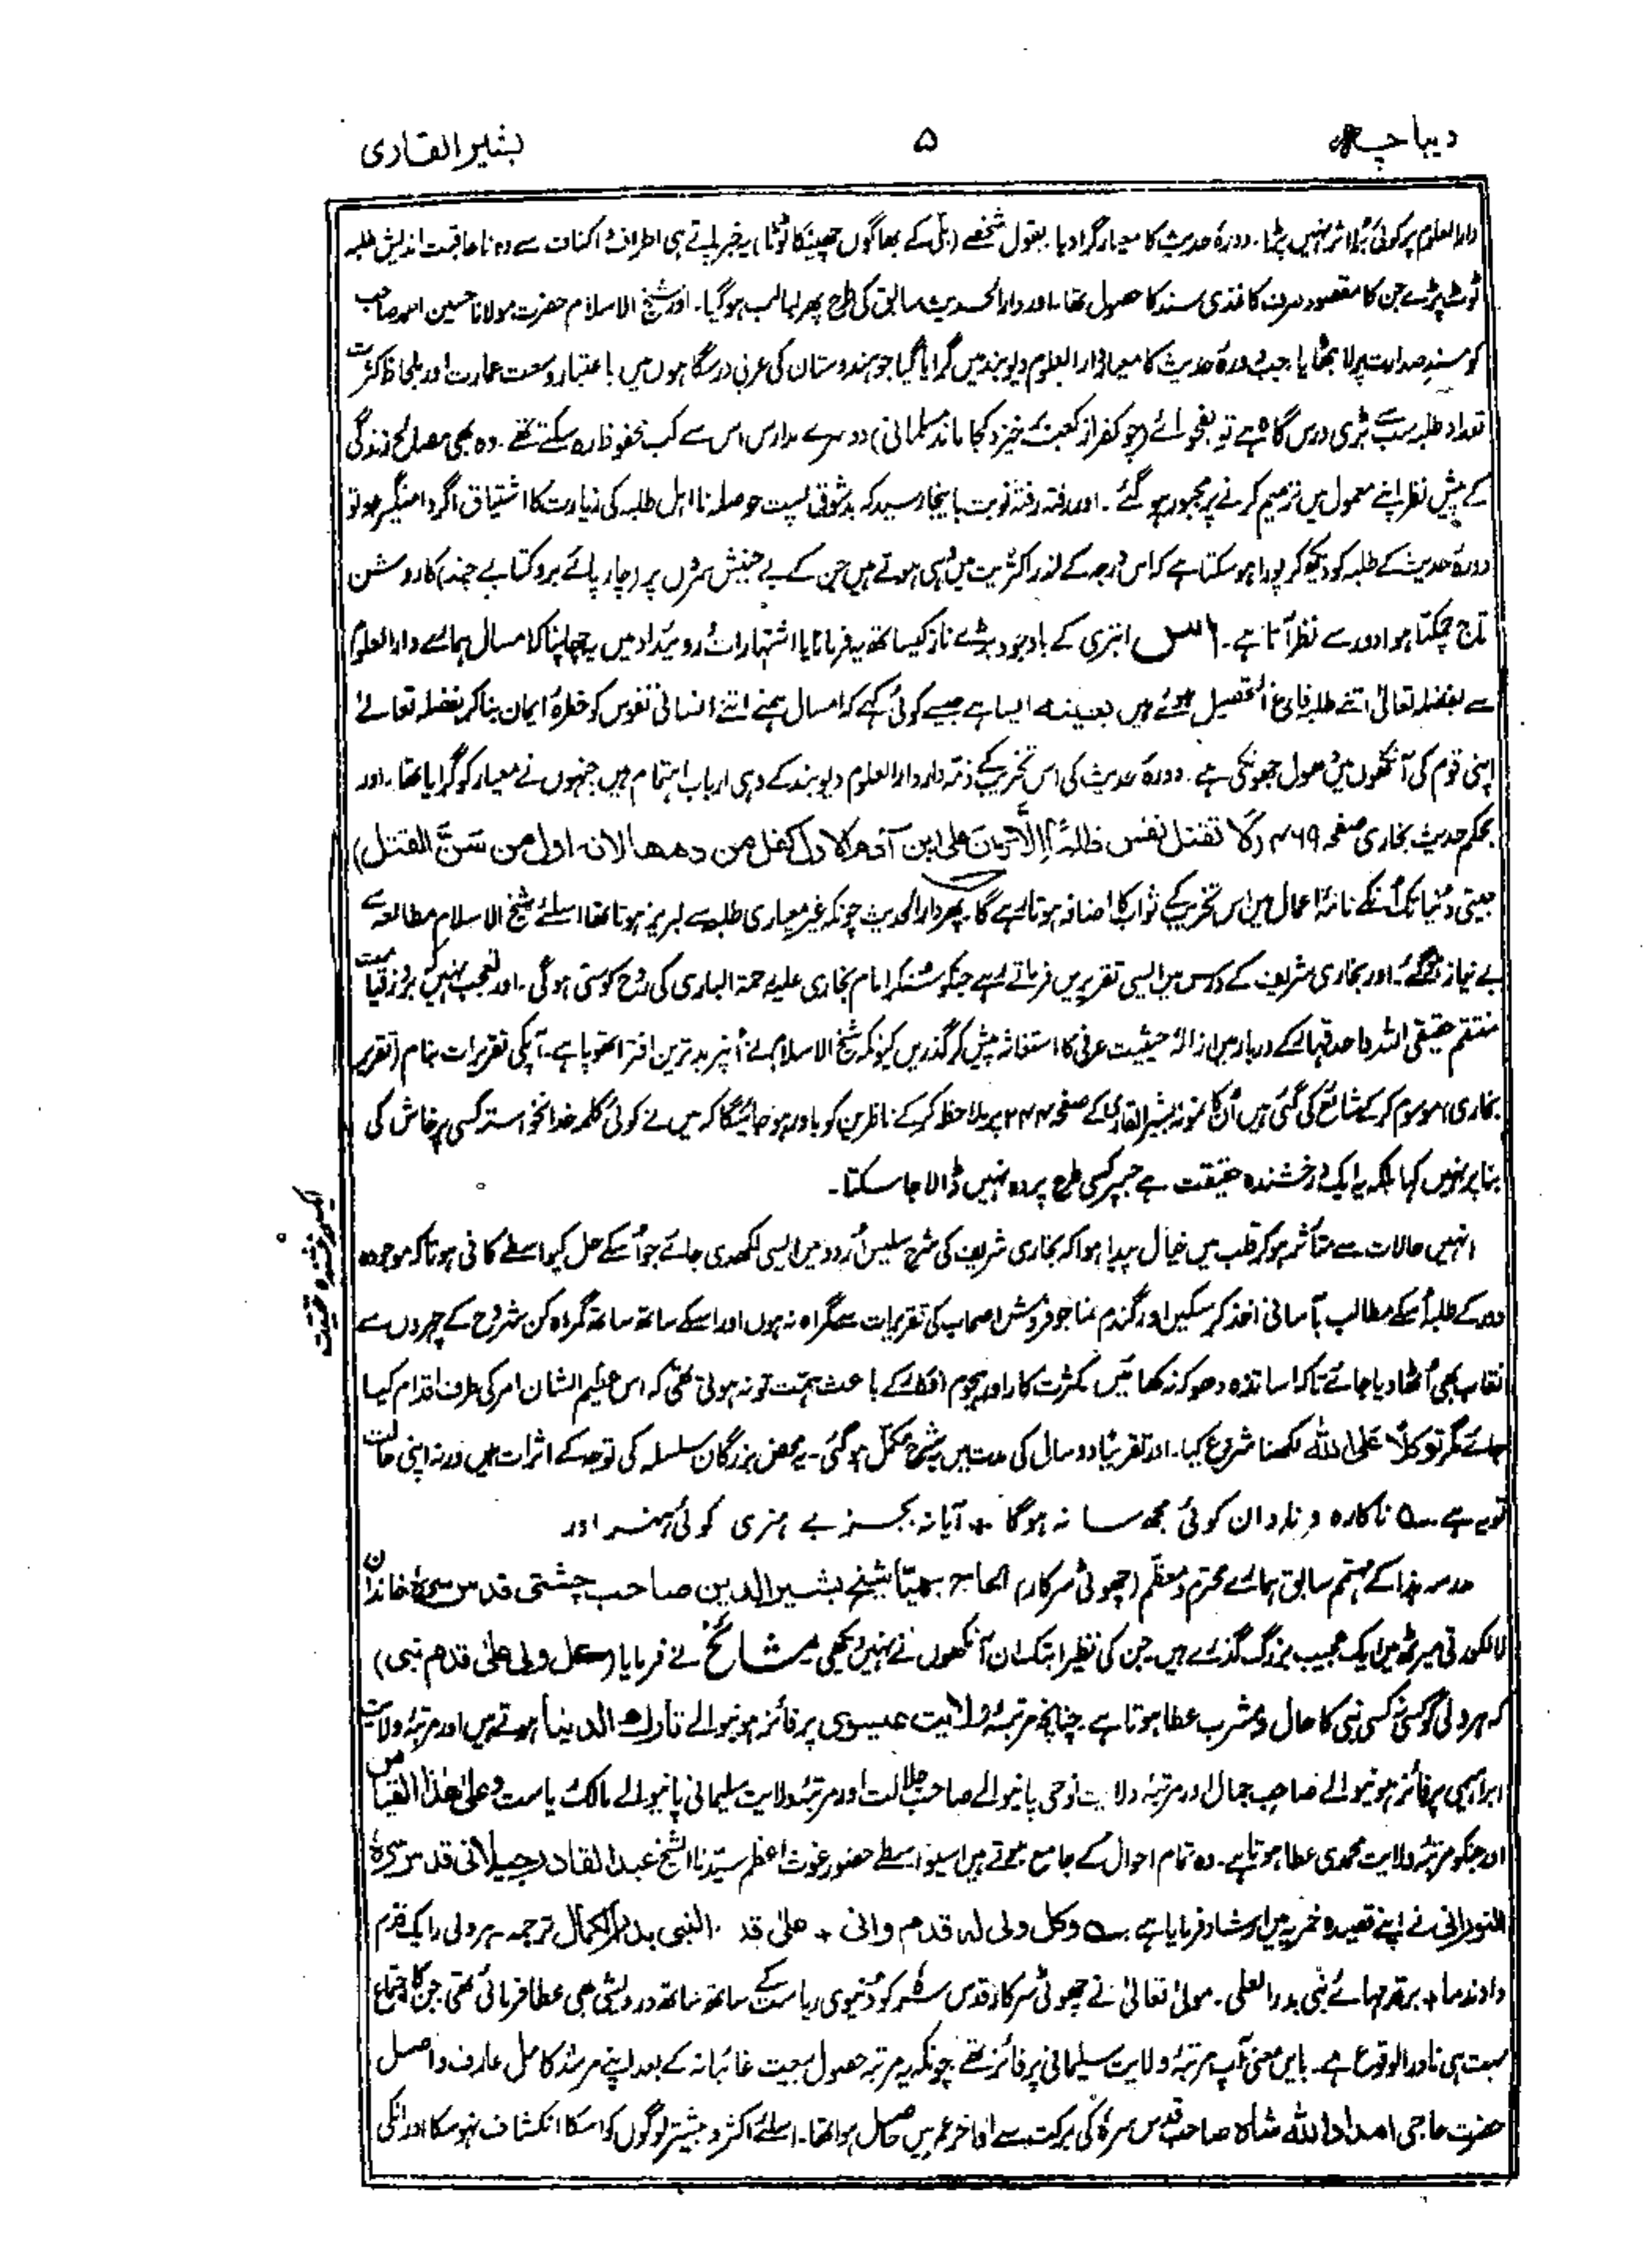 دیباچہ
۵
بشیر القاری
دارالعلوم پر کوئی بُرا اثر نہیں پڑتا۔ دورۂ حدیث کا معیار گرادیا۔ بقول شخصے (بلّی کے بھاگوں چھینکا ٹوٹا) یہ خبر پاتے ہی اطراف و اکناف سے وہ ناعاقبت اندیش طلبہ
ٹوٹ پڑے جن کا مقصود صرف کاغذی سند کا حصول تھا۔ اور دارالحدیث سابق کی طرح پھر لبالب ہوگیا۔ اور شیخ الاسلام حضرت مولانا حسین احمد صاحب
کو مسند صدارت پر لا بٹھایا۔ جب دورۂ حدیث کا معیار دارالعلوم دیوبند میں گرایا گیا جو ہندوستان کی عربی درسگاہوں میں باعتبار وسعت عمارت اور بلحاظ کثرت
تعداد طلبہ سب سے بڑی درس گاہ ہے تو بفحوائے (چو کفر از کعبہ برخیزد کجا ماند مسلمانی) دوسرے مدارس اس سے کب محفوظ رہ سکتے تھے۔ وہ بھی مصالح زندگی
کے پیش نظر اپنے معمول میں ترمیم کرنے پر مجبور ہوگئے۔ اور رفتہ رفتہ نوبت باینجا رسید کہ بدشوق پست حوصلہ نااہل طلبہ کی زیارت کا اشتیاق اگر دامنگیر ہو تو
دورۂ حدیث کے طلبہ کو دیکھ کر پورا ہوسکتا ہے کہ اس درجہ کے اندر اکثریت میں وہی ہوتے ہیں جن کے بے جنبش سروں پر (چارپائے برو کتابے چند) کا روشن
تاج چمکتا ہوا دور سے نظر آتا ہے۔ اس ابتری کے باوجود بڑے ناز کیساتھ یہ فرمانا یا اشتہارات و روئیداد میں یہ چھاپنا کہ امسال ہمارے دارالعلوم
سے بفضلہ تعالیٰ اتنے طلبہ فارغ التحصیل ہوئے ہیں بعینہ ایسا ہے جیسے کوئی کہے کہ امسال ہمنے اتنے انسانی نفوس کو خطرۂ ایمان بنا کر بفضلہ تعالےٰ
اپنی قوم کی آنکھوں میں دھول جھونکی ہے۔ دورۂ حدیث کی اس تخریب کے ذمہ دار دارالعلوم دیوبند کے وہی ارباب اہتمام ہیں جنہوں نے معیار کو گرایا تھا۔ اور
بحکم حدیث بخاری صفحہ ۴۶۹ (لا تقتل نفس ظلمًا الا کان علی ابن آدم الاول کفل من دمھا لانہ اول من سنّ القتل)
جیتی دنیا تک اُنکے نامۂ اعمال میں اس تخریب کے ثواب کا اضافہ ہوتا رہے گا۔ پھر دارالحدیث چونکہ غیر معیاری طلبہ سے لبریز ہوتا تھا اسلئے شیخ الاسلام مطالعہ سے
بے نیاز ہوگئے۔ اور بخاری شریف کے درس میں ایسی تقریریں فرماتے رہے جنکو سُنکر امام بخاری علیہ رحمۃ الباری کی روح کوستی ہوگی۔ اور تعجب نہیں کہ بروز قیامت
منتقم حقیقی اللہ واحد قہار کے دربار میں ازالۂ حیثیت عرفی کا استغاثہ پیش کر گذریں کیونکہ شیخ الاسلام نے اُنپر بدترین افترا تھوپا ہے۔ آپکی تقریرات بنام (تقریر
بخاری) موسوم کرکے شائع کی گئی ہیں اُن کا نمونہ بشیر القاری کے صفحہ ۲۴۴ پر ملاحظہ کرکے ناظرین کو باور ہوجائیگا کہ میں نے کوئی کلمہ خدانخواستہ کسی پرخاش کی
بنا پر نہیں کہا بلکہ یہ ایک درخشندہ حقیقت ہے جسپر کسی طرح پردہ نہیں ڈالا جاسکتا۔
انہیں حالات سے متأثر ہوکر قلب میں خیال پیدا ہوا کہ بخاری شریف کی شرح سلیس اُردو میں ایسی لکھدی جائے جو اُسکے حل کیواسطے کافی ہو تاکہ موجودہ
دور کے طلبہ اُسکے مطالب بآسانی اخذ کرسکیں اور گندم نما جو فروش اصحاب کی تقریرات سے گمراہ نہ ہوں اور اسکے ساتھ ساتھ گمراہ کن شروح کے چہروں سے
نقاب بھی اُٹھا دیا جائے تاکہ اساتذہ دھوکہ نہ کھائیں کثرت کار اور ہجوم افکار کے باعث ہمت تو نہ ہوتی تھی کہ اس عظیم الشان امر کی طرف اقدام کیا
جائے مگر توکلًا علی اللہ لکھنا شروع کیا۔ اور تقریبًا دو سال کی مدت میں یہ شرح مکمل ہوگئی۔ یہ محض بزرگان سلسلہ کی توجہ کے اثرات ہیں ورنہ اپنی حالت
تو یہ ہے ؎ ناکارہ و نادان کوئی مجھ سا نہ ہوگا + آیا نہ بجز بے ہنری کوئی ہنر اور
مدرسہ ہذا کے مہتمم سابق ہمارے محترم و معظم (چھوٹی سرکار) الحاج بھیّا شیخ بشیر الدین صاحب چشتی قدس سرہٗ خاندان
لالکورتی میرٹھ میں ایک عجیب بزرگ گذرے ہیں۔ جن کی نظیر ابتک ان آنکھوں نے نہیں دیکھی مشائخ نے فرمایا (کل ولی علیٰ قدم نبی)
کہ ہر ولی کو کسی نہ کسی نبی کا حال و مشرب عطا ہوتا ہے۔ چنانچہ مرتبۂ ولایت عیسوی پر فائز ہونیوالے تارک الدینا ہوتے ہیں اور مرتبۂ ولایت
ابراہیمی پر فائز ہونیوالے صاحب جمال اور مرتبۂ ولایت نوحی پانیوالے صاحب جلالت اور مرتبۂ ولایت سلیمانی پانیوالے مالک ریاست وعلیٰ ھٰذا القیاس
اور جنکو مرتبۂ ولایت محمدی عطا ہوتا ہے۔ وہ تمام احوال کے جامع ہوتے ہیں اسیواسطے حضور غوث اعظم سیدنا الشیخ عبدالقادر جیلانی قدس سرہٗ
النورانی نے اپنے قصیدہ خمریہ میں ارشاد فرمایا ہے ؎ وکل ولی لہ قدم وانی + علیٰ قدم النبی بدر الکمال ترجمہ۔ ہر ولی را یک قدم
دادند ما + برقدمہائے نبی بدرالعلی۔ مولیٰ تعالیٰ نے چھوٹی سرکار قدس سرہٗ کو دُنیوی ریاست کے ساتھ ساتھ درویشی بھی عطا فرمائی تھی جن کا اجتماع
بہت ہی نادر الوقوع ہے۔ بایں معنی آپ مرتبۂ ولایت سلیمانی پر فائز تھے چونکہ یہ مرتبہ حصول بیعت غائبانہ کے بعد اپنے مرشد کامل عارف واصل
حضرت حاجی امداد اللہ شاہ صاحب قدس سرہٗ کی برکت سے اواخر عمر میں حاصل ہوا تھا۔ اسلئے اکثر و بیشتر لوگوں کو اسکا انکشاف نہوسکا اور انکی